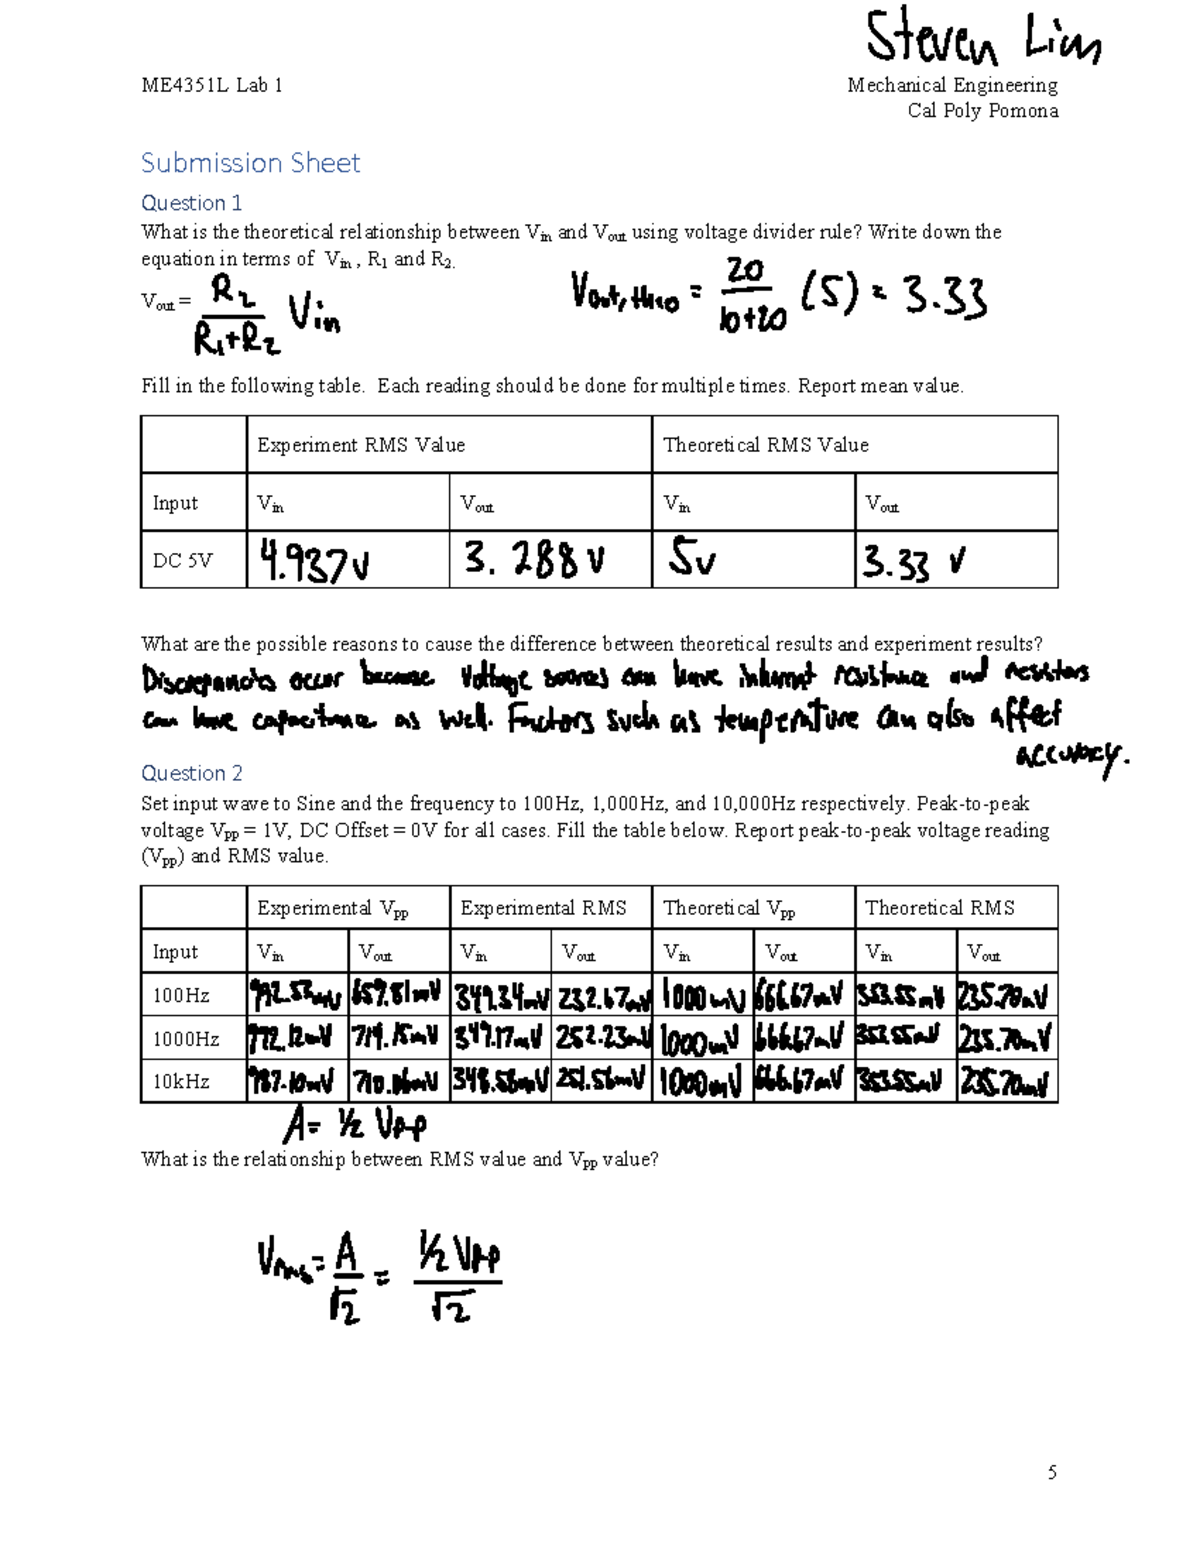 Steven Lim
ME4351L Lab 1
Mechanical Engineering
Cal Poly Pomona
Submission Sheet
Question 1
What is the theoretical relationship between Vin and Vout using voltage divider rule? Write down the
equation in terms of Vin , R1 and R2.
Vout = R2 / (R1+R2) Vin
Vout, theo = 20 / (10+20) (5) = 3.33
Fill in the following table. Each reading should be done for multiple times. Report mean value.
Experiment RMS Value Theoretical RMS Value
Input Vin Vout Vin Vout
DC 5V 4.937v 3.288 v 5v 3.33 v
What are the possible reasons to cause the difference between theoretical results and experiment results?
Discrepancies occur because voltage sources can have inherent resistance and resistors
can have capacitance as well. Factors such as temperature can also affect
accuracy.
Question 2
Set input wave to Sine and the frequency to 100Hz, 1,000Hz, and 10,000Hz respectively. Peak-to-peak
voltage Vpp = 1V, DC Offset = 0V for all cases. Fill the table below. Report peak-to-peak voltage reading
(Vpp) and RMS value.
Experimental Vpp Experimental RMS Theoretical Vpp Theoretical RMS
Input Vin Vout Vin Vout Vin Vout Vin Vout
100Hz 992.53mV 659.81mV 349.34mV 232.67mV 1000mV 666.67mV 353.55mV 235.70mV
1000Hz 714.15mV 349.17mV 252.23mV 1000mV 666.67mV 353.55mV 235.70mV
10kHz 987.10mV 348.56mV 251.56mV 1000mV 666.67mV 353.55mV 235.70mV
A= 1/2 Vpp
What is the relationship between RMS value and Vpp value?
Vrms = A / √2 = 1/2 Vpp / √2
5